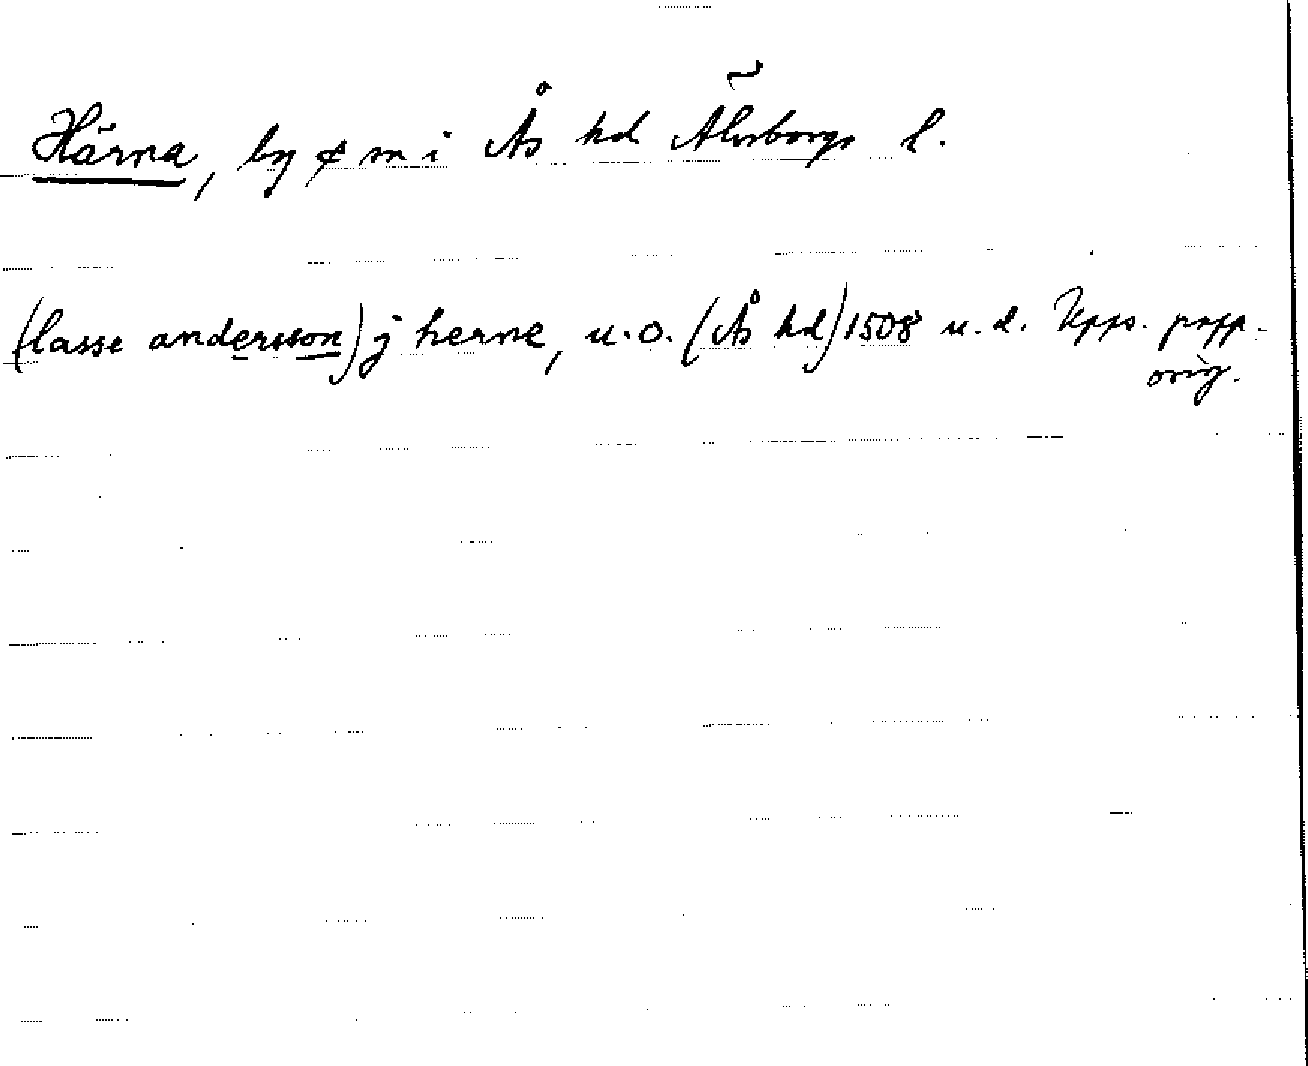 Härna, by o m i Ås hd Älvsborgs l.
(lasse andersson) j herne, u.o. (Ås hd) 1508 u.d. Upps. papp.
orig.